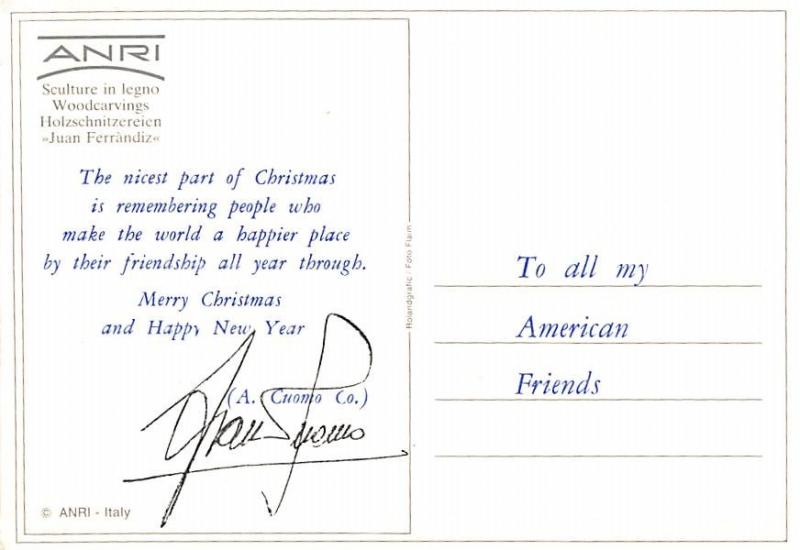 ANRI
Sculture in legno
Woodcarvings
Holzschnitzereien
»Juan Ferràndiz«
The nicest part of Christmas
is remembering people who
make the world a happier place
by their friendship all year through.
Merry Christmas
and Happy New Year
(A. Cuomo Co.)
© ANRI - Italy
Rolandgrafic / Foto Flaim
To all my
American
Friends